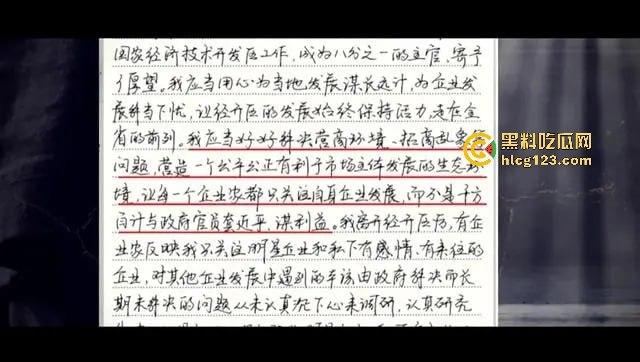 国家经济技术开发区工作，成为八分之一的主官，寄予
了厚望。我应当用心为当地发展谋长远计，为企业发
展解当下忧，让经开区的发展始终保持活力，走在全
省的前列。我应当好好解决营商环境、招商乱象
问题，营造一个公平公正有利于市场主体发展的生态环
境，让每一个企业家都只关注自身企业发展，而不是千方
百计与政府官员套近乎、谋利益。我离开经开区后，有企
业家反映我只关注明星企业和私下有感情、有来往的
企业，对其他企业发展中遇到的应该由政府解决而长
期未解决的问题从未认真沉下心来调研，认真研究
黑料吃瓜网
hlcg123.com